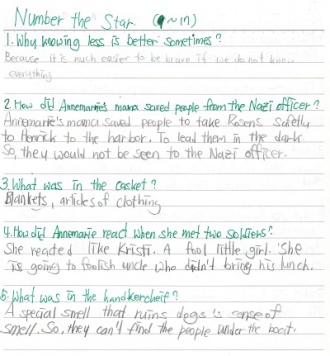 Number the Star (9~17)
1. Why knowing less is better sometimes?
Because it is much easier to be brave if we do not know
everything
2. How did Annemarie's mama saved people from the Nazi officer?
Annemarie's mama saved people to take Rosens safetly
to Henrick to the harbor. To lead them in the dark
So, they would not be seen to the Nazi officer.
3. What was in the casket?
Blankets, articles of clothing
4. How did Annemarie react when she met two soldiers?
She reacted like Kristi. A fool little girl. She
is going to foolish uncle who didn't bring his lunch.
5. What was in the handkercheif?
A special smell that ruins dogs's sense of
smell. So, they can't find the people under the boat.